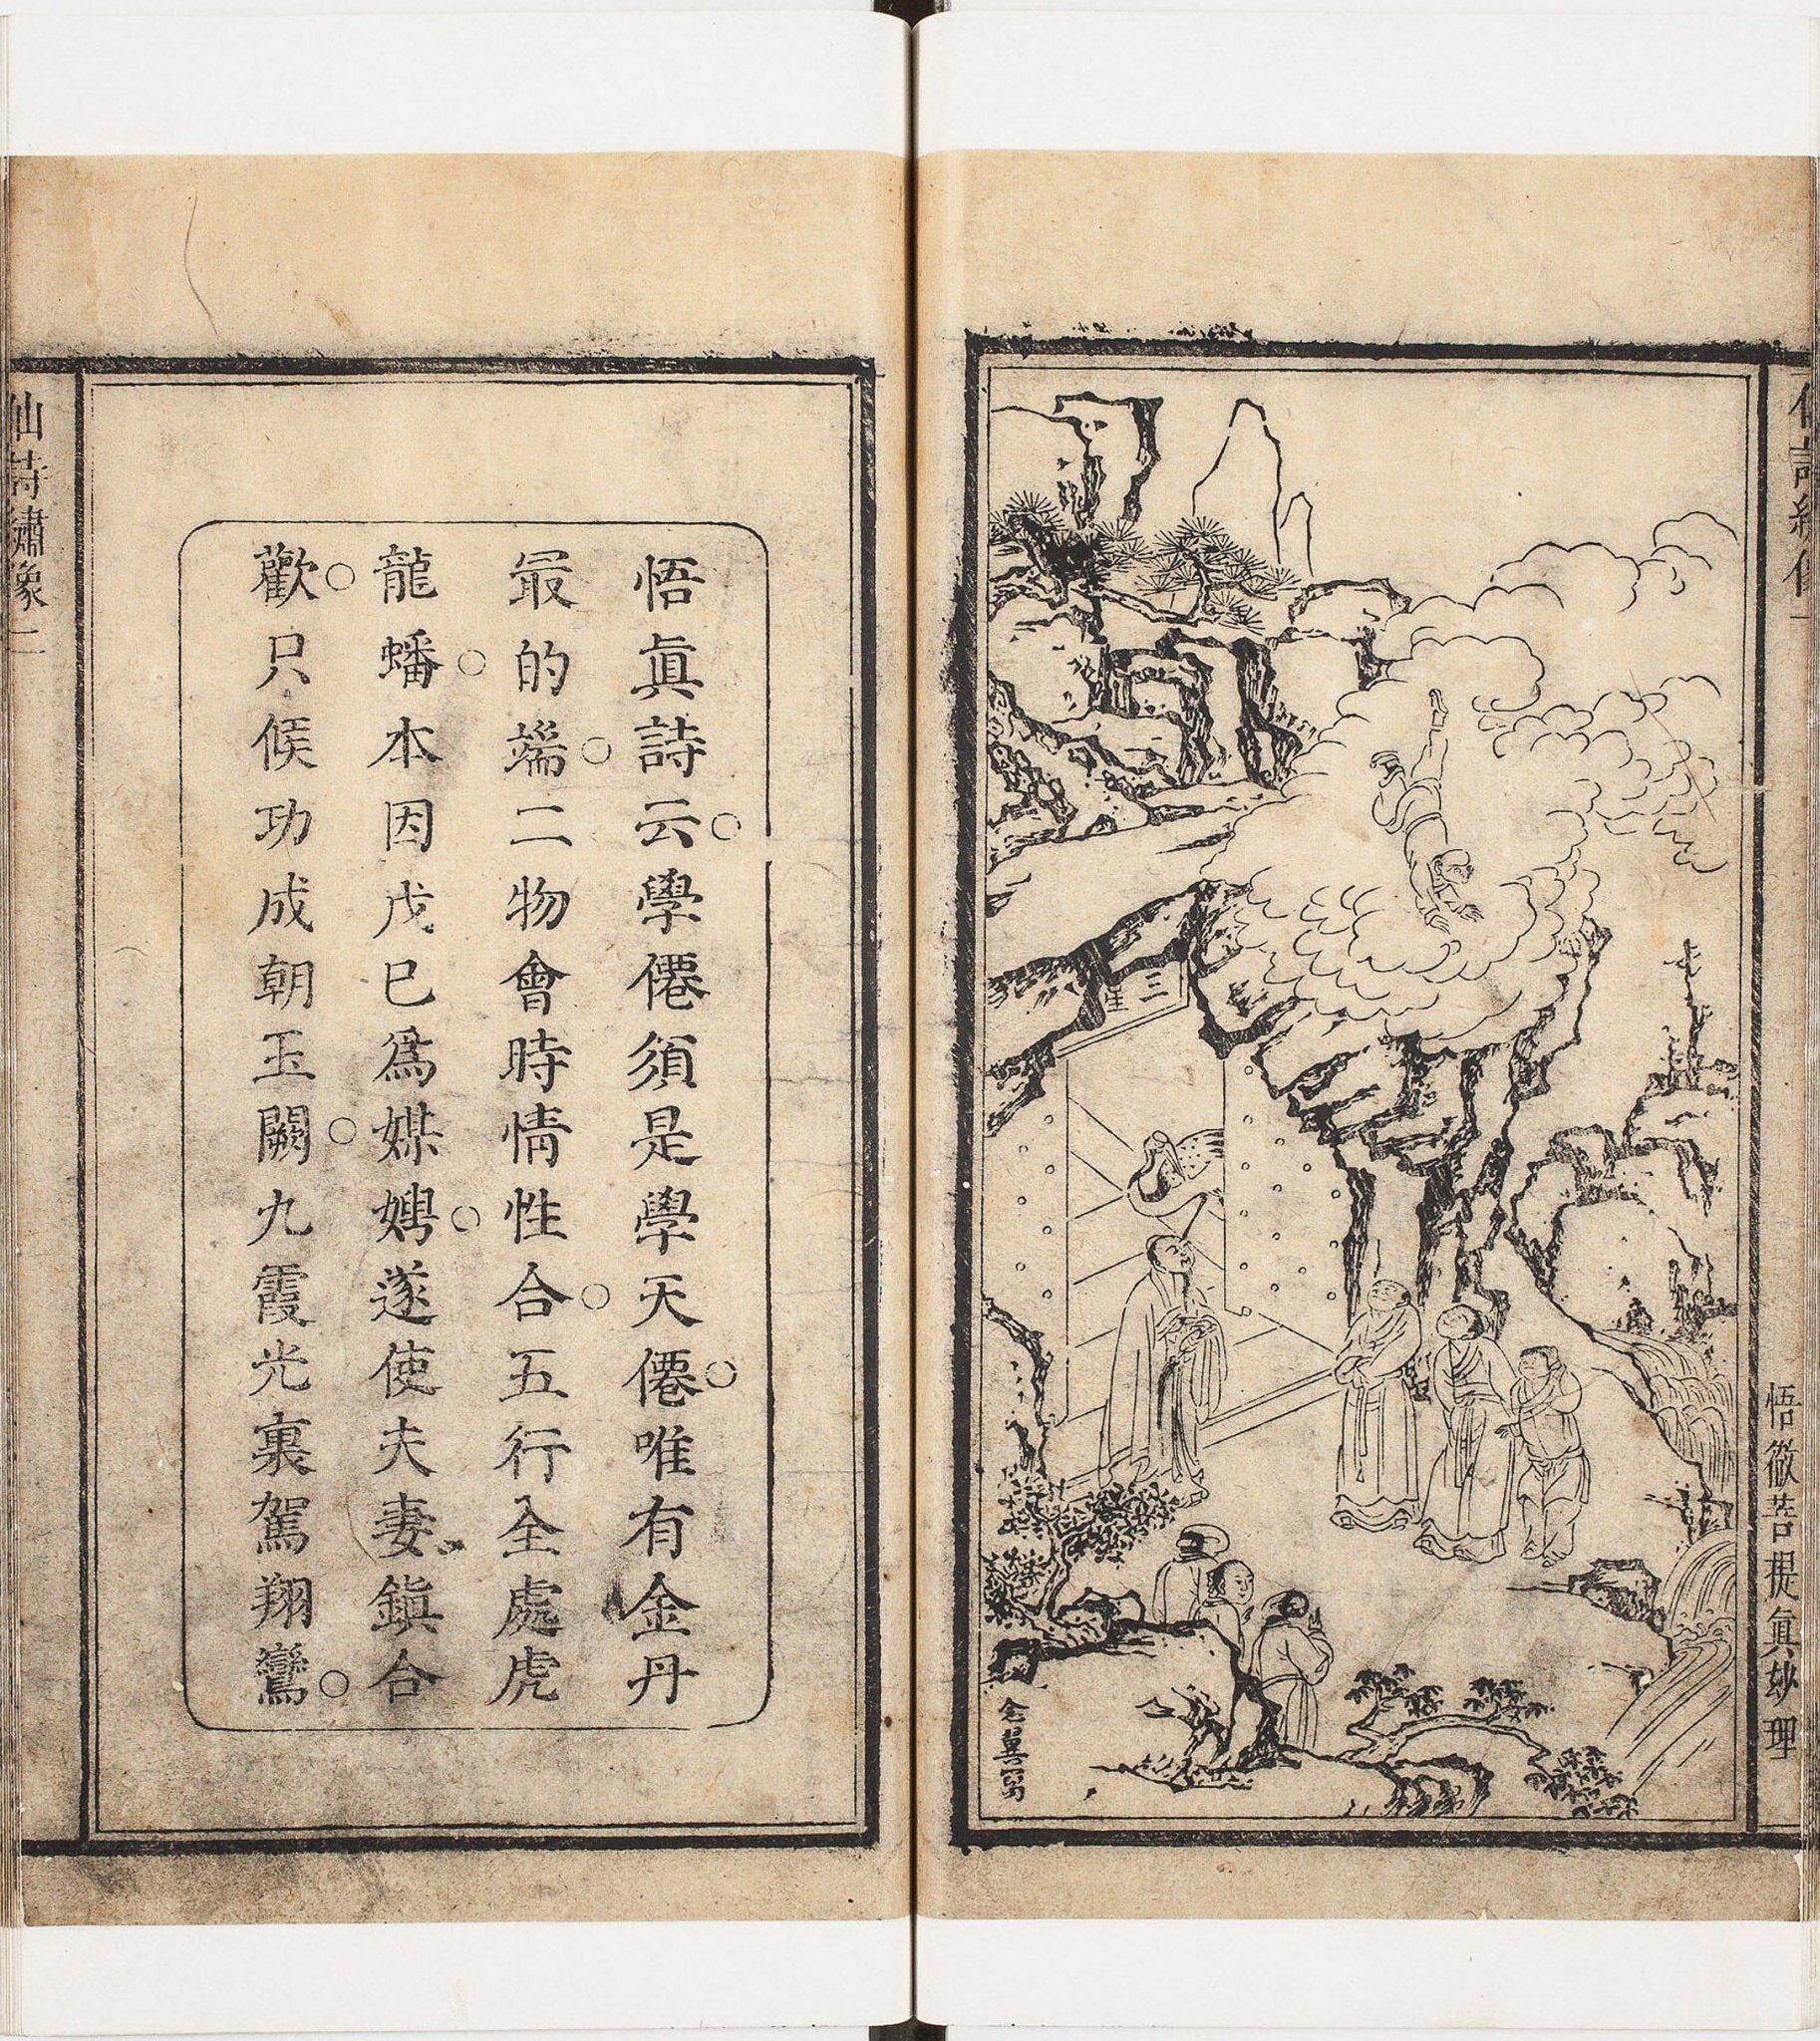 悟徹菩提眞妙理
三星
仝萬冨
悟眞詩云○學僊須是學天僊○唯有金丹
最的端○二物會時情性合○五行全處虎
龍蟠○本因戊已爲媒娉○遂使夫妻鎮合
歡○只候功成朝玉闕○九霞光裏駕翔鸞○
仙詩繡像 二